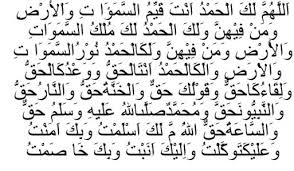 اَللَّهُمَّ لَكَ الْحَمْدُ اَنْتَ قَيِّمُ السَّمَوَا تِ وَاْلاَرْضِ
وَمَنْ فِيْهِنَّ وَلَكَ الْحَمْدُ لَكَ مُلْكُ السَّمَوَا تِ
وَاْلاَرْضِ وَمَنْ فِيْهِنَّ وَلَكَالْحَمْدُ نُوْرُالسَّمَوَا تِ
وَاْلاَرْضِ وَالَكَالْحَمْدُ اَنْتَالْحَقُّ وَوَعْدُكَالْحَقُّ
وَلِقَاءُكَاحَقٌّ وَقَوْلُكَ حَقٌّ وَالْخَنَّةُحَقٌّ وَالنَّارُحَقٌّ
وَالنَّبِيُّونَحَقٌّ وَمُحَمَّدٌصَلَّىاللهُ عَلَيْهِ وَسَلَّمُ حَقٌّ
وَالسَّاعَةُحَقٌّ اَللهُ مَّ لَكَ اَسْلَمْتُ وَبِكَ اَمَنْتُ
وَعَلَيْكَتَوَكَّلْتُ وَاِلَيْكَ اَنَبْتُ وَبِكَ خَا صَمْتُ